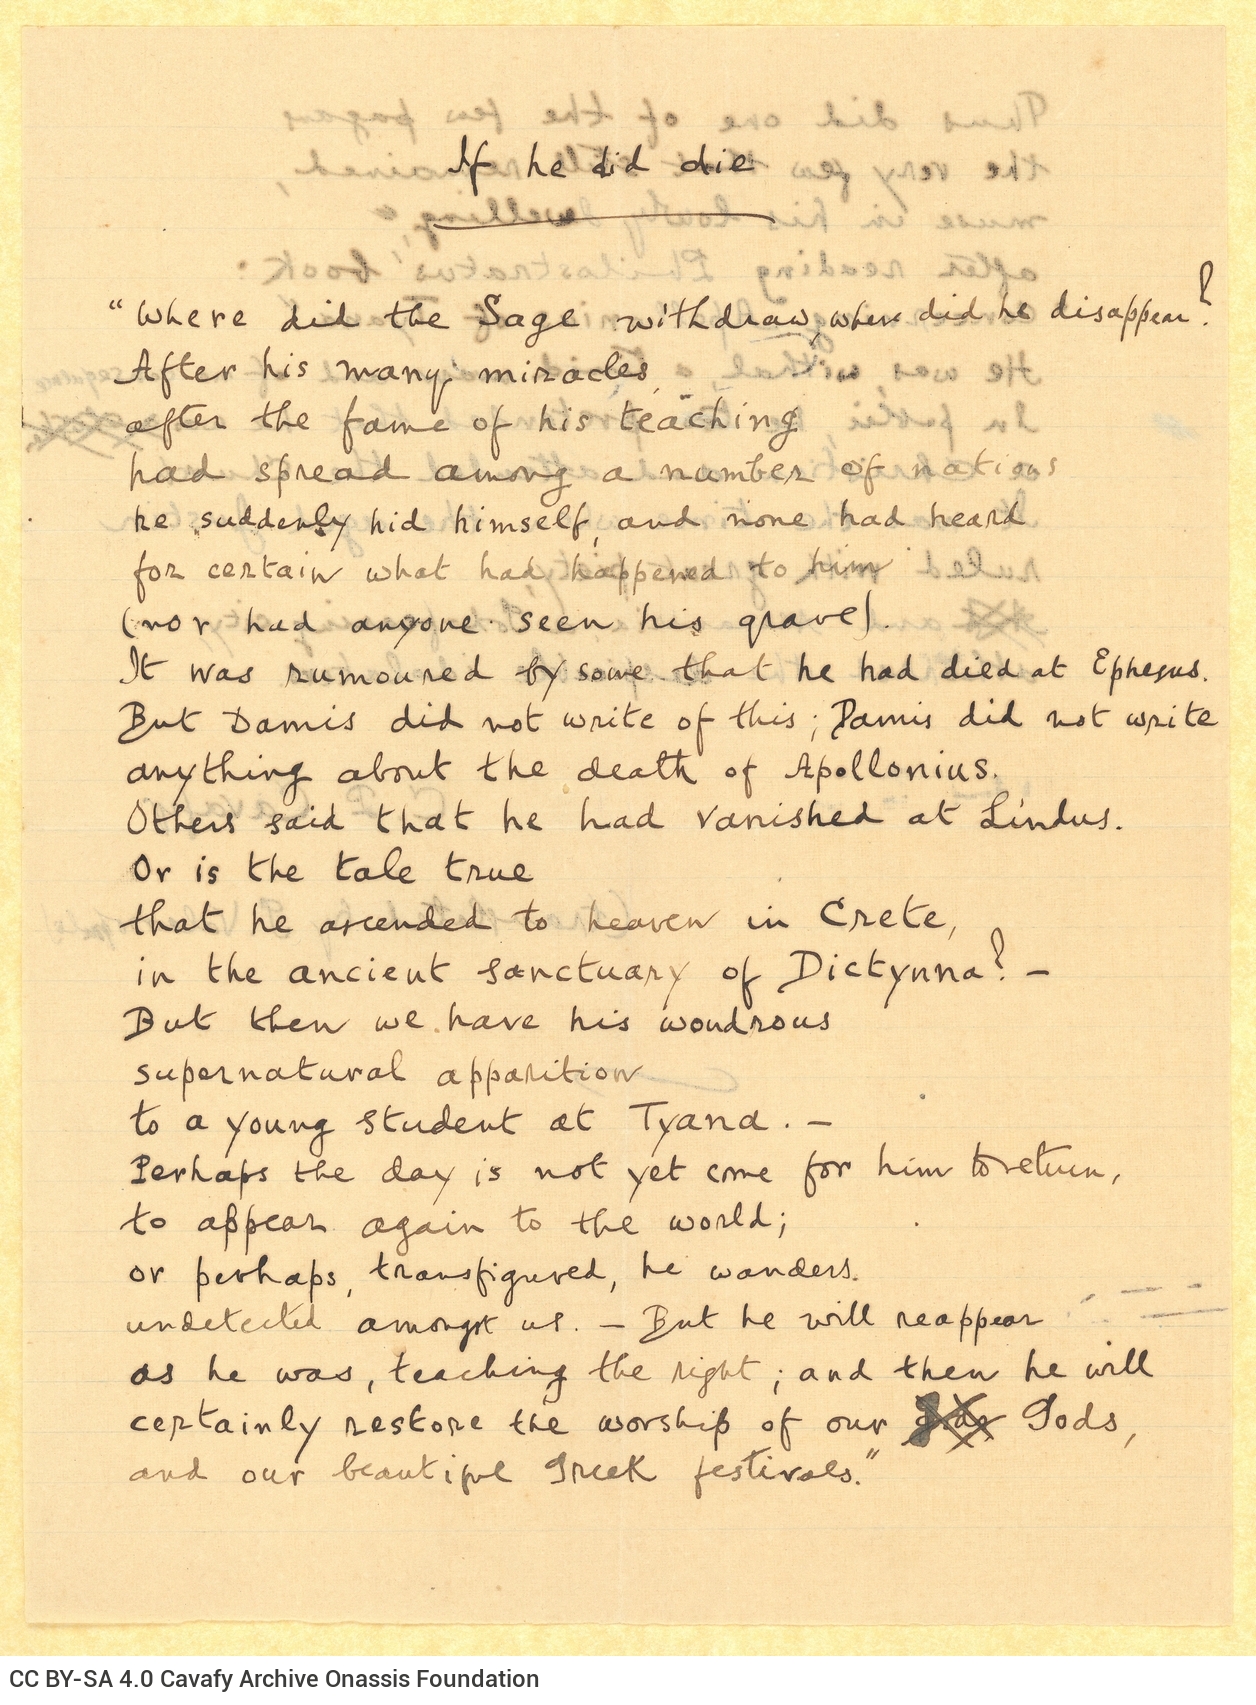 If he did die
"Where did the Sage withdraw, where did he disappear?
After his many miracles,
after the fame of his teaching
had spread among a number of nations
he suddenly hid himself, and none had heard
for certain what had happened to him
(nor had anyone seen his grave).
It was rumoured by some that he had died at Ephesus.
But Damis did not write of this; Damis did not write
anything about the death of Apollonius.
Others said that he had vanished at Lindus.
Or is the tale true
that he ascended to heaven in Crete,
in the ancient sanctuary of Dictynna? –
But then we have his wondrous
supernatural apparition
to a young student at Tyana. –
Perhaps the day is not yet come for him to return,
to appear again to the world;
or perhaps, transfigured, he wanders
undetected amongst us. – But he will reappear
as he was, teaching the right; and then he will
certainly restore the worship of our Gods,
and our beautiful Greek festivals."
CC BY-SA 4.0 Cavafy Archive Onassis Foundation